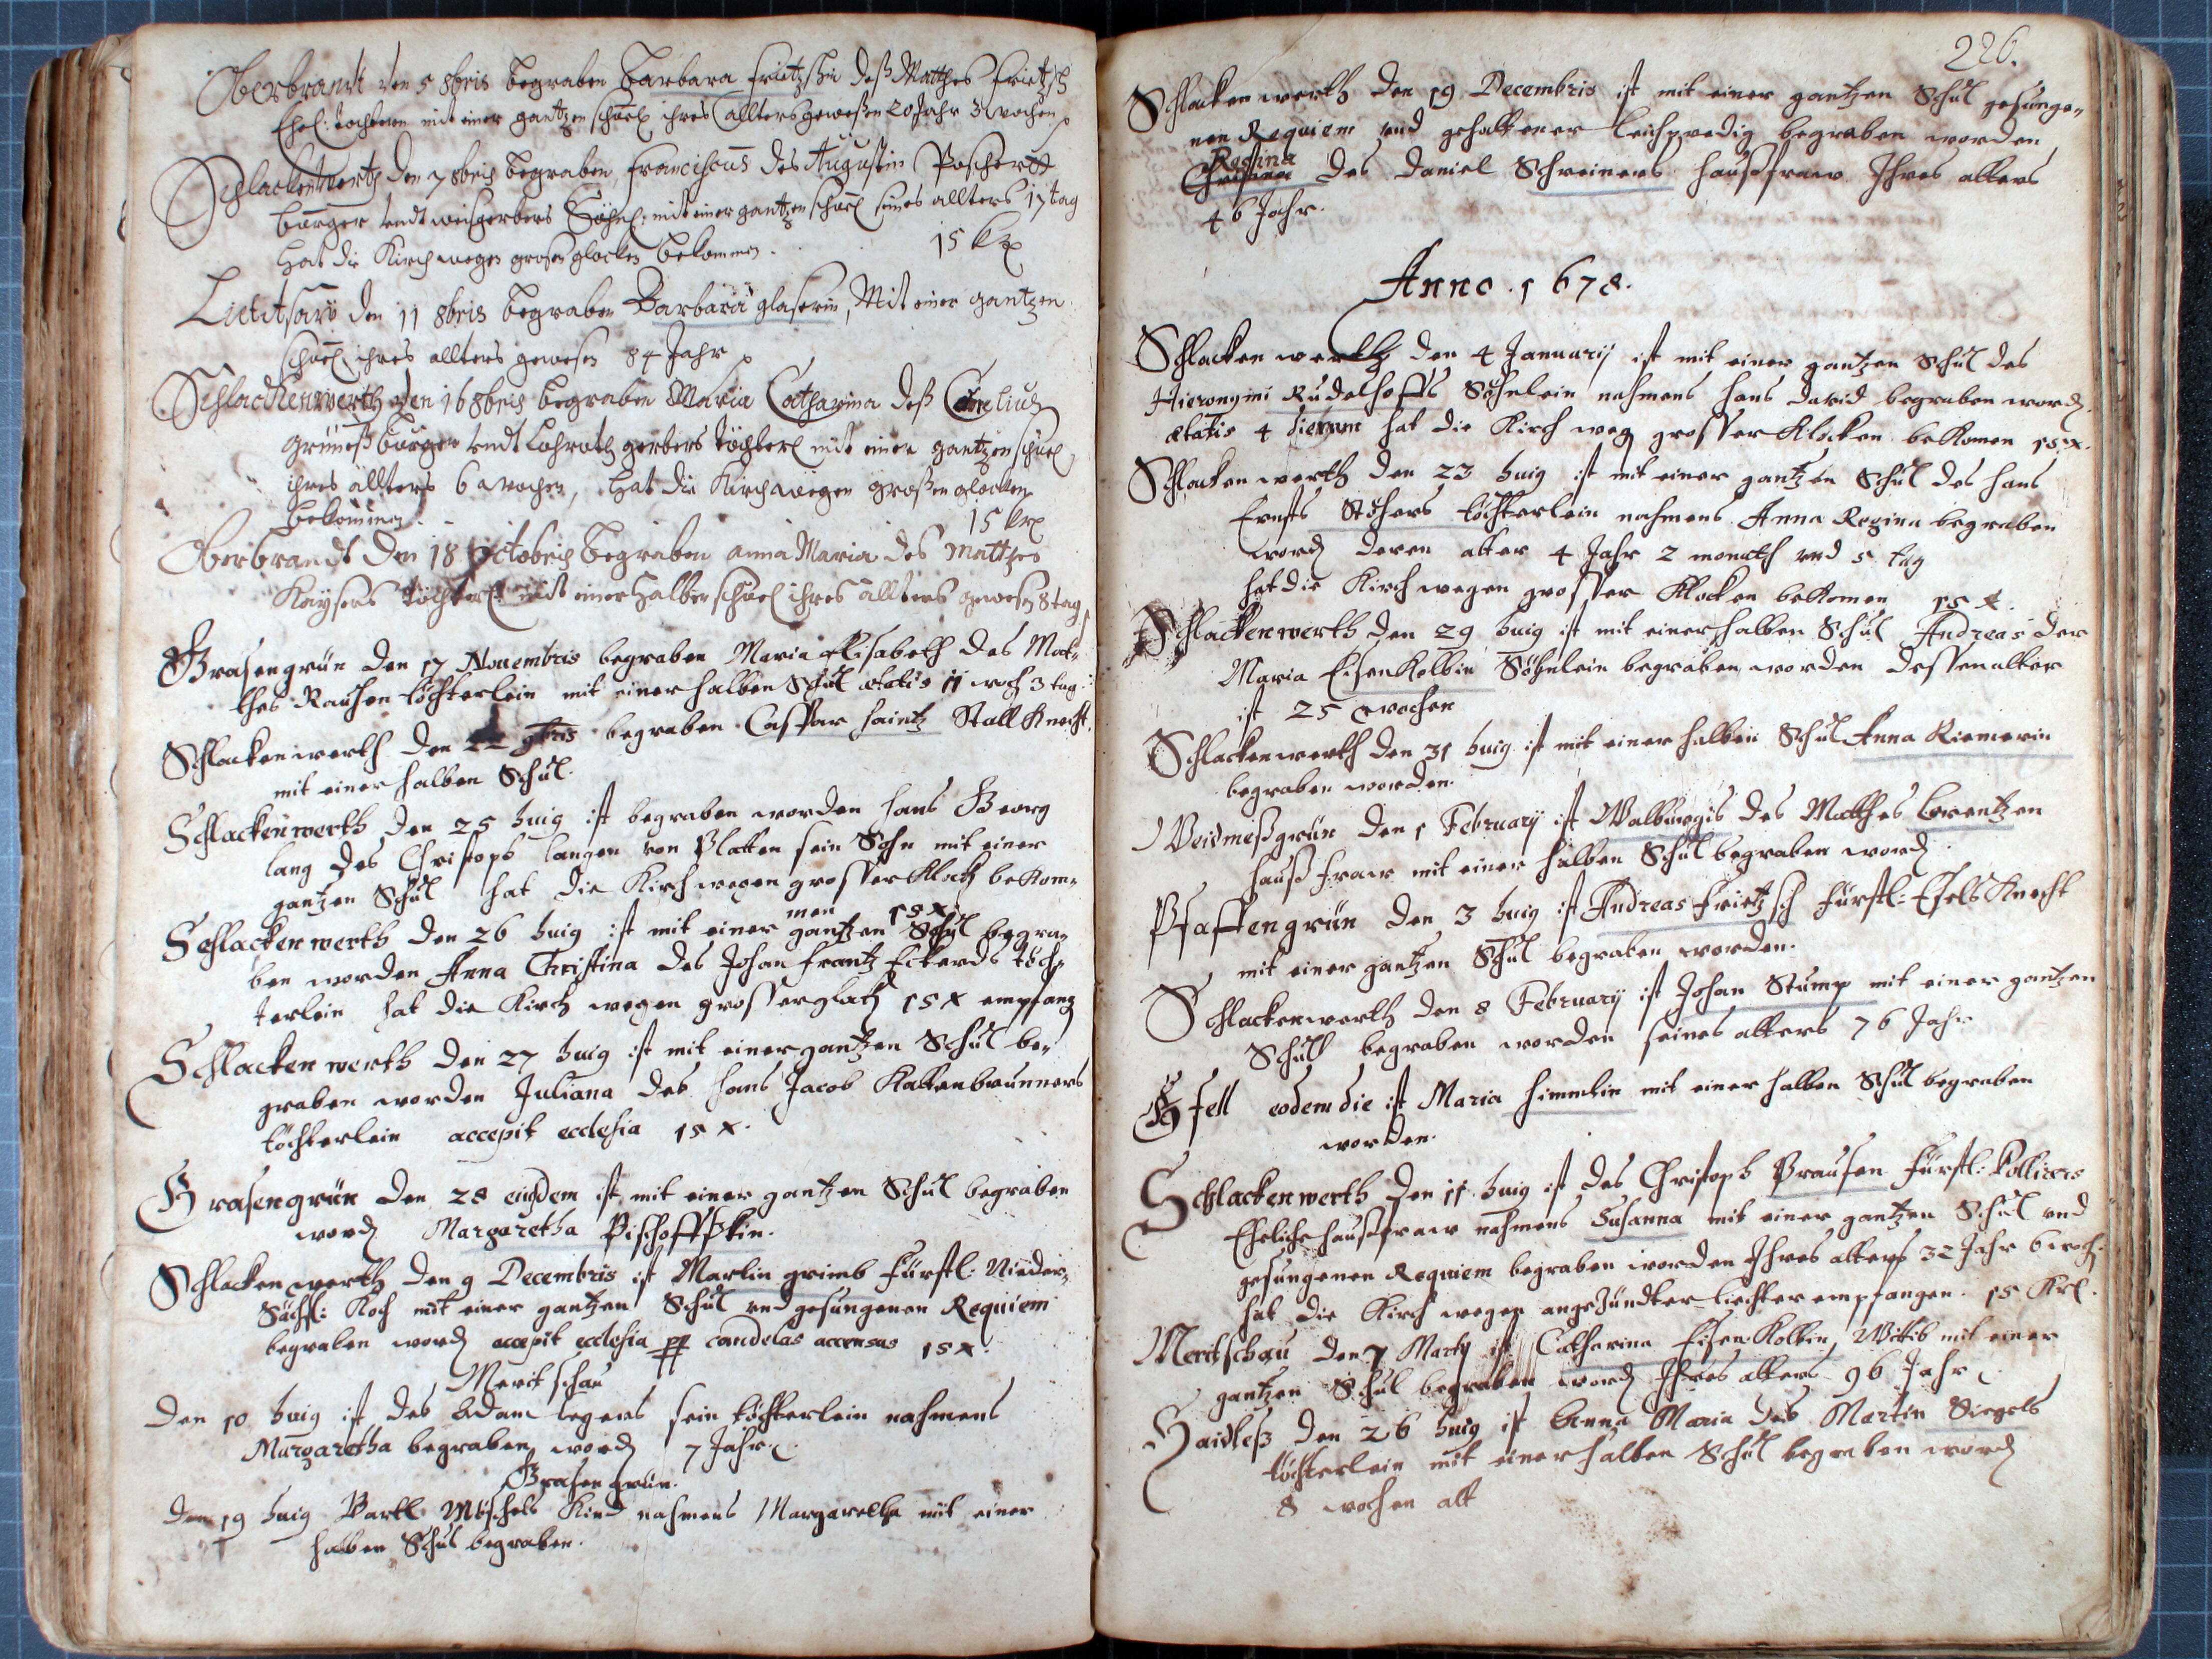 Oberbrandt den 5 8bris begraben Barbara Frietzschin deß Matthes Frietzsch
Ehel: tochtern mit einer gantzen schuel ihres allters geweßen 20 Jahr 3 wochen
Schlackenwerth den 7 8bris begraben Franciscus des Augustin Poschert
burger undt weisgerbers Söhnl: mit einer gantzen schuel seines allters 17 tag
Hat die Kirch wegen grosen glocken bekommen. 15 kr
den 11 8bris begraben Barbara glaserin, Mit einer gantzen
schuel ihres allters gewesen 84 Jahr
Schlackenwerth den 16 8bris begraben Maria Catharina deß
burger undt gerbers töchterl mit einer gantzen schuel
ihres allters 6 wochen, Hat die Kirch wegen großen glocken
bekommen. 15 kr
Oberbrandt den 18 Octobris begraben anna Maria des Matthes
Kaysers töchterl: mit einer halben schuel ihres allters gewesen 8 tag
Grasengrün den 17 Nouembris begraben Maria Elisabeth des Mat-
thes Rauschen töchterlein mit einer halben Schul ætatis 11 woch 3 tag.
Schlackenwerth den 22 9bris begraben Caspar haintz Stall Knecht.
mit einer halben Schul.
Schlackenwerth den 25 huig ist begraben worden hans Georg
lang des Christoph langen von Platten sein Sohn mit einer
gantzen Schul hat die Kirch wegen grosser Klock bekom-
men 15 x.
Schlackenwerth den 26 huig ist mit einer gantzen Schul begra-
ben worden Anna Christina des Johan frantz Eckerds töch-
terlein hat die Kirch wegen grosser 15 x empfang
Schlackenwerth den 27 huig ist mit einer gantzen Schul be-
graben worden Juliana des hans Jacob Kaltenbrunners
töchterlein accepit ecclesia 15 x.
Grasengrün den 28 eiusdem ist mit einer gantzen Schul begraben
word Margaretha
Schlackenwerth den 9 Decembris ist Martin grimb Fürstl: Nieder-
Sächs: Koch mit einer gantzen Schul und gesungenen Requiem
begraben word accepit ecclesia candelas accensas 15 x.
Meritschau
Den 10 huig ist des Adam legers sein töchterlein nahmens
Margaretha begraben word 7 Jahr.
Grasengrün.
Den 19 huig Bartl Mischels Kind nahmens Margaretha mit einer
halben Schul begraben.
226.
Schlackenwerth den 19 Decembris ist mit einer gantzen Schul gesunge-
nen Requiem und gehaltener leichpredig begraben worden
Regina
Christina des Daniel Schreiners haußfraw Ihres alters
46 Jahr.
Anno. 1678.
Schlackenwerth den 4 Januarij ist mit einer gantzen Schul des
Hieronymi Rudelhoffs Söhnlein nahmens hans david begraben word.
ætatis 4 dierum hat die Kirch weg grosser Klocken bekomen 15 x.
Schlackenwerth den 23 huig ist mit einer gantzen Schul des hans
Ernsts Stöhers töchterlein nahmens Anna Regina begraben
word deren alter 4 Jahr 2 monath und 5 tag
hat die Kirch wegen grosser Klocken bekomen 15 x.
Schlackenwerth den 29 huig ist mit einer halben Schul Andreas der
Maria Eisenkolbin Söhnlein begraben worden dessen alter
ist 25 wochen
Schlackenwerth den 31 huig ist mit einer halben Schul Anna Riemerin
begraben worden.
Weidmeßgrün den 1 February ist Walburgis des Matthes Lorentzen
haußfraw mit einer halben Schul begraben word.
Pfaffengrün den 3 huig ist Andreas Frietzsch Fürstl: Esels Knecht
mit einer gantzen Schul begraben worden.
Schlackenwerth den 8 February ist Johan Stump mit einer gantzen
Schull begraben worden seines alters 76 Jahr
Gfell eodem die ist Maria himmlin mit einer halben Schul begraben
worden.
Schlackenwerth den 11 huig ist des Christoph Brausen Fürstl:
Eheliche haußfraw nahmens Susanna mit einer gantzen Schul und
gesungenen Requiem begraben worden Ihres alters 32 Jahr 6 woch.
hat die Kirch wegen angezündter liechter empfangen. 15 Kr.
Meritschau den 7 Marty ist Catharina Eisenkolbin Witib mit einer
gantzen Schul begraben word Ihres alters 96 Jahr
Haidleß den 26 huig ist Anna Maria des Martin Siegels
töchterlein mit einer halben Schul begraben word
8 wochen alt